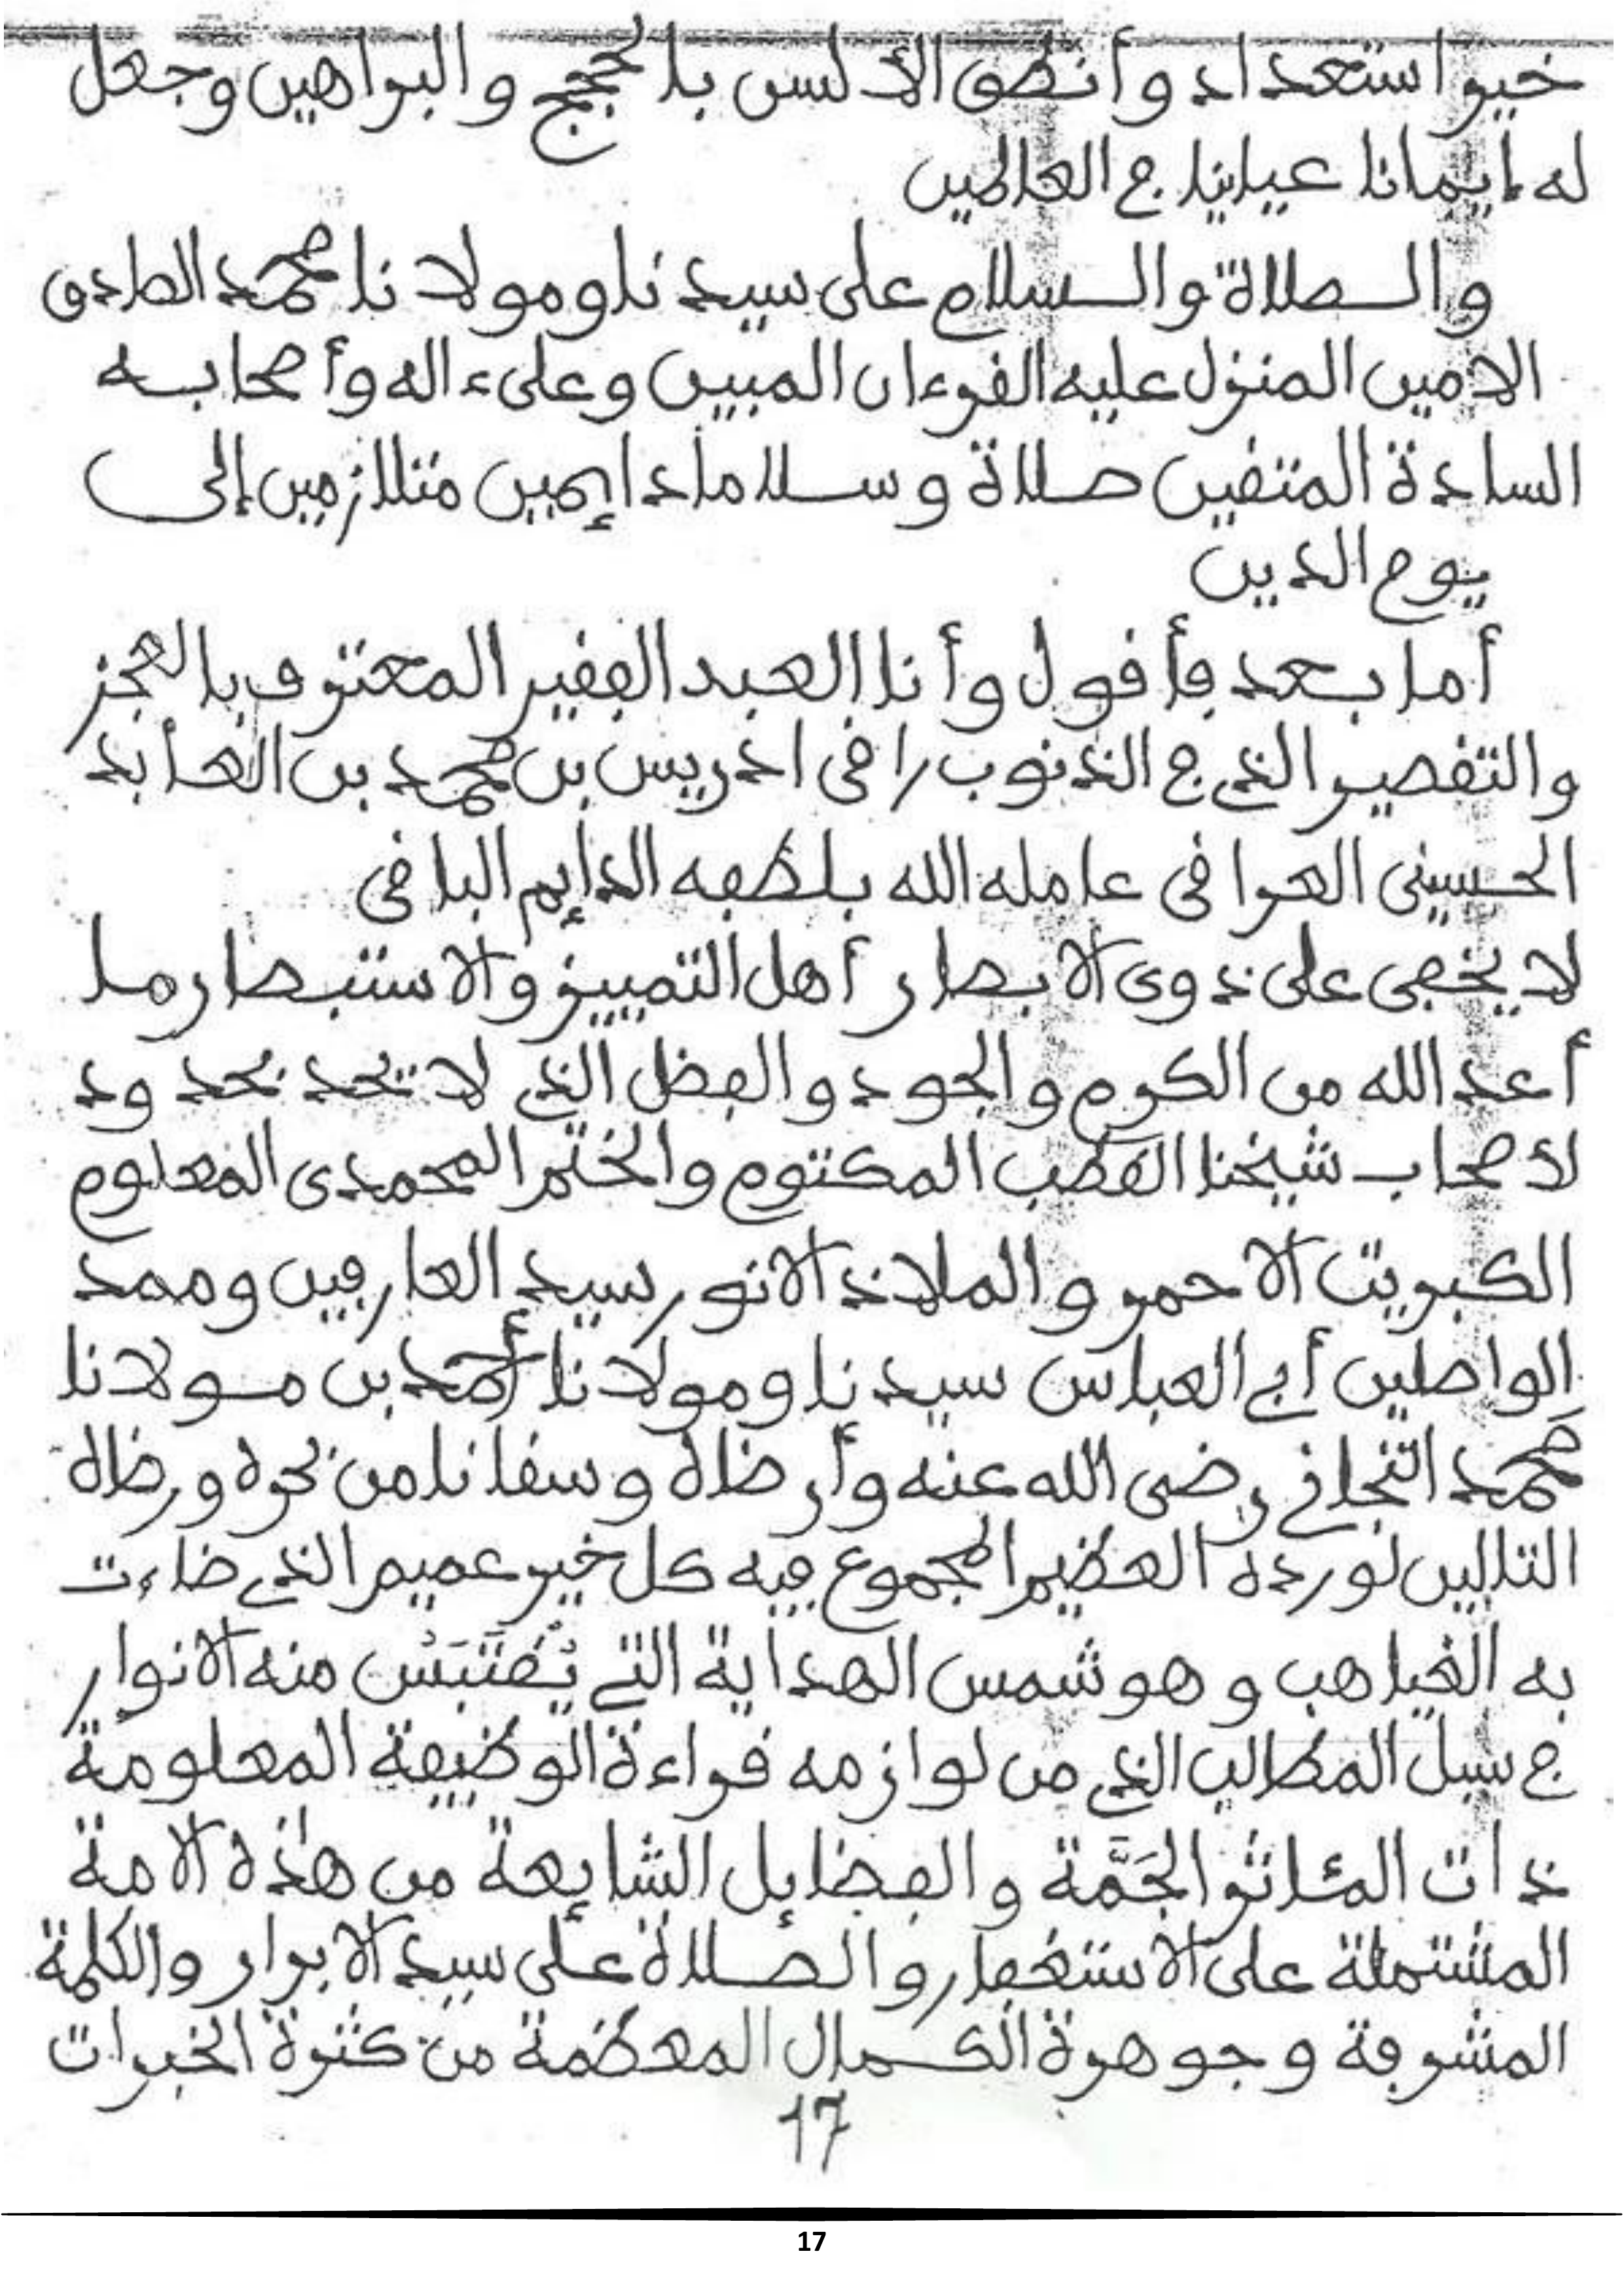 خير استعداد وأنطق الألسن بالحجج والبراهين وجعل
له إيمانا عيانيا في العالمين
والصلاة والسلام على سيدنا ومولانا محمد الصادق
الامين المنزل عليه القرءان المبين وعلى ءاله وأصحابه
السادة المتقين صلاة وسلاما دايمين متلازمين إلى
يوم الدين
أما بعد فأقول وأنا العبد الفقير المعترف بالعجز
والتقصير الذي في الذنوب راقى ادريس بن محمد بن العابد
الحسيني العراقى عامله الله بلطفه الدايم الباقى
لا يخفى على ذوى الابصار أهل التمييز والاستبصار ما
أعد الله من الكرم والجود والفضل الذي لا تحد بحدود
لأصحاب شيخنا القطب المكتوم والختم المحمدى المعلوم
الكبريت الاحمر والملاذ الانور سيد العارفين وممد
الواصلين أبي العباس سيدنا ومولانا أحمد بن مولانا
محمد التجاني رضى الله عنه وأرضاه وسقانا من بحره ورضاه
التالين لورده العظيم المجموع فيه كل خير عميم الذي ضاءت
به الغياهب وهو شمس الهداية التي يُقتَبَسُ منه الانوار
في سبل المطالب الذي من لوازمه قراءة الوظيفة المعلومة
ذات المئاثر الجَمَّة والفضايل الشايعة من هذه الامة
المشتملة على الاستغفار والصلاة على سيد الابرار والكلمة
المشرفة وجوهرة الكمال المعظمة من كثرة الخيرات
17
17